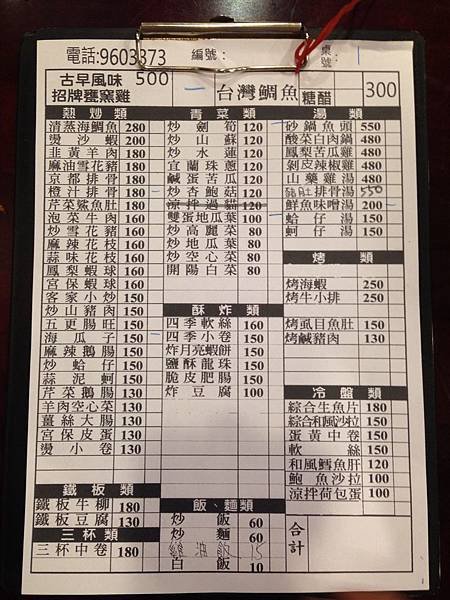 電話:9603373 編號: 桌號: 1
古早風味 500
招牌甕窯雞
台灣鯛魚 糖醋 300
熱炒類
清蒸海鯛魚 280
燙沙蝦 200
韭黃羊肉 180
麻油雪花豬 180
京都排骨 180
橙汁排骨 180
芹菜鯊魚肚 180
泡菜牛肉 160
炒雪花豬 160
麻辣花枝 160
蒜味花枝 160
鳳梨蝦球 160
宮保蝦球 160
客家小炒 150
炒山豬肉 150
五更腸旺 150
海瓜子 150
麻辣鵝腸 150
炒蛤仔 150
蒜泥蚵 150
芹菜鵝腸 130
羊肉空心菜 130
薑絲大腸 130
宮保皮蛋 130
燙小卷 130
鐵板類
鐵板牛柳 180
鐵板豆腐 130
三杯類
三杯中卷 180
青菜類
炒劍筍 120
炒山蘇 120
炒水蓮 120
宜蘭珠蔥 120
鹹蛋苦瓜 120
炒杏鮑菇 120
涼拌過貓 120
雙蛋地瓜葉 100
炒高麗菜 80
炒地瓜葉 80
炒空心菜 80
開陽白菜 80
酥炸類
四季軟絲 160
四季小卷 150
炸月亮蝦餅 150
鹽酥龍珠 150
脆皮肥腸 150
炸豆腐 100
飯、麵類
炒飯 60
炒麵 60
雞油飯 15
白飯 10
湯類
砂鍋魚頭 550
酸菜白肉鍋 480
鳳梨苦瓜雞 480
剝皮辣椒雞 480
山藥雞湯 480
豬肚排骨湯 550
鮮魚味噌湯 200
蛤仔湯 150
蚵仔湯 150
烤類
烤海蝦 250
烤牛小排 250
烤虱目魚肚 150
烤鹹豬肉 130
冷盤類
綜合生魚片 180
綜合和風沙拉 150
蛋黃中卷 150
軟絲 150
和風鱈魚肝 120
鮑魚沙拉 100
涼拌荷包蛋 100
合計